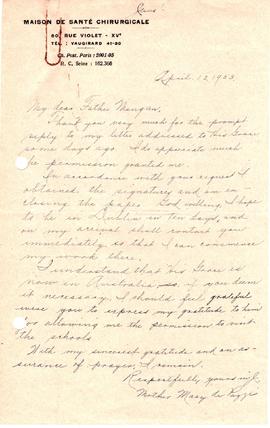 MAISON DE SANTÉ CHIRURGICALE
60, RUE VIOLET - XVe
TÉL. : VAUGIRARD 41-50
Ch. Post. Paris : 2001-05
R. C. Seine : 162.308
April 12 1953
My dear Father Mangan,
Thank you very much for the prompt
reply to my letter addressed to His Grace
some days ago. I do appreciate much
the permission granted me.
In accordance with your request I
obtained the signatures and am en-
closing the paper. God willing, I hope
to be in Dublin in ten days, and
on my arrival shall contact you
immediately so that I can commence
my work there.
I understand that his Grace is
now in Australia so if you deem
it necessary, I should feel grateful
were you to express my gratitude to him
for allowing me the permission to visit
the schools
With my sincerest gratitude and an as-
surance of prayer, I remain
Respectfully yours
Mother Mary de